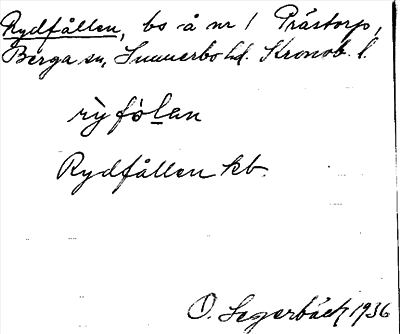 Rydfållen, bo å nr 1 Prästorp,
Berga sn, Sunnerbo hd. Kronob. l.
rỳ fòlan
Rydfållen kb.
O. Segerbäck 1936